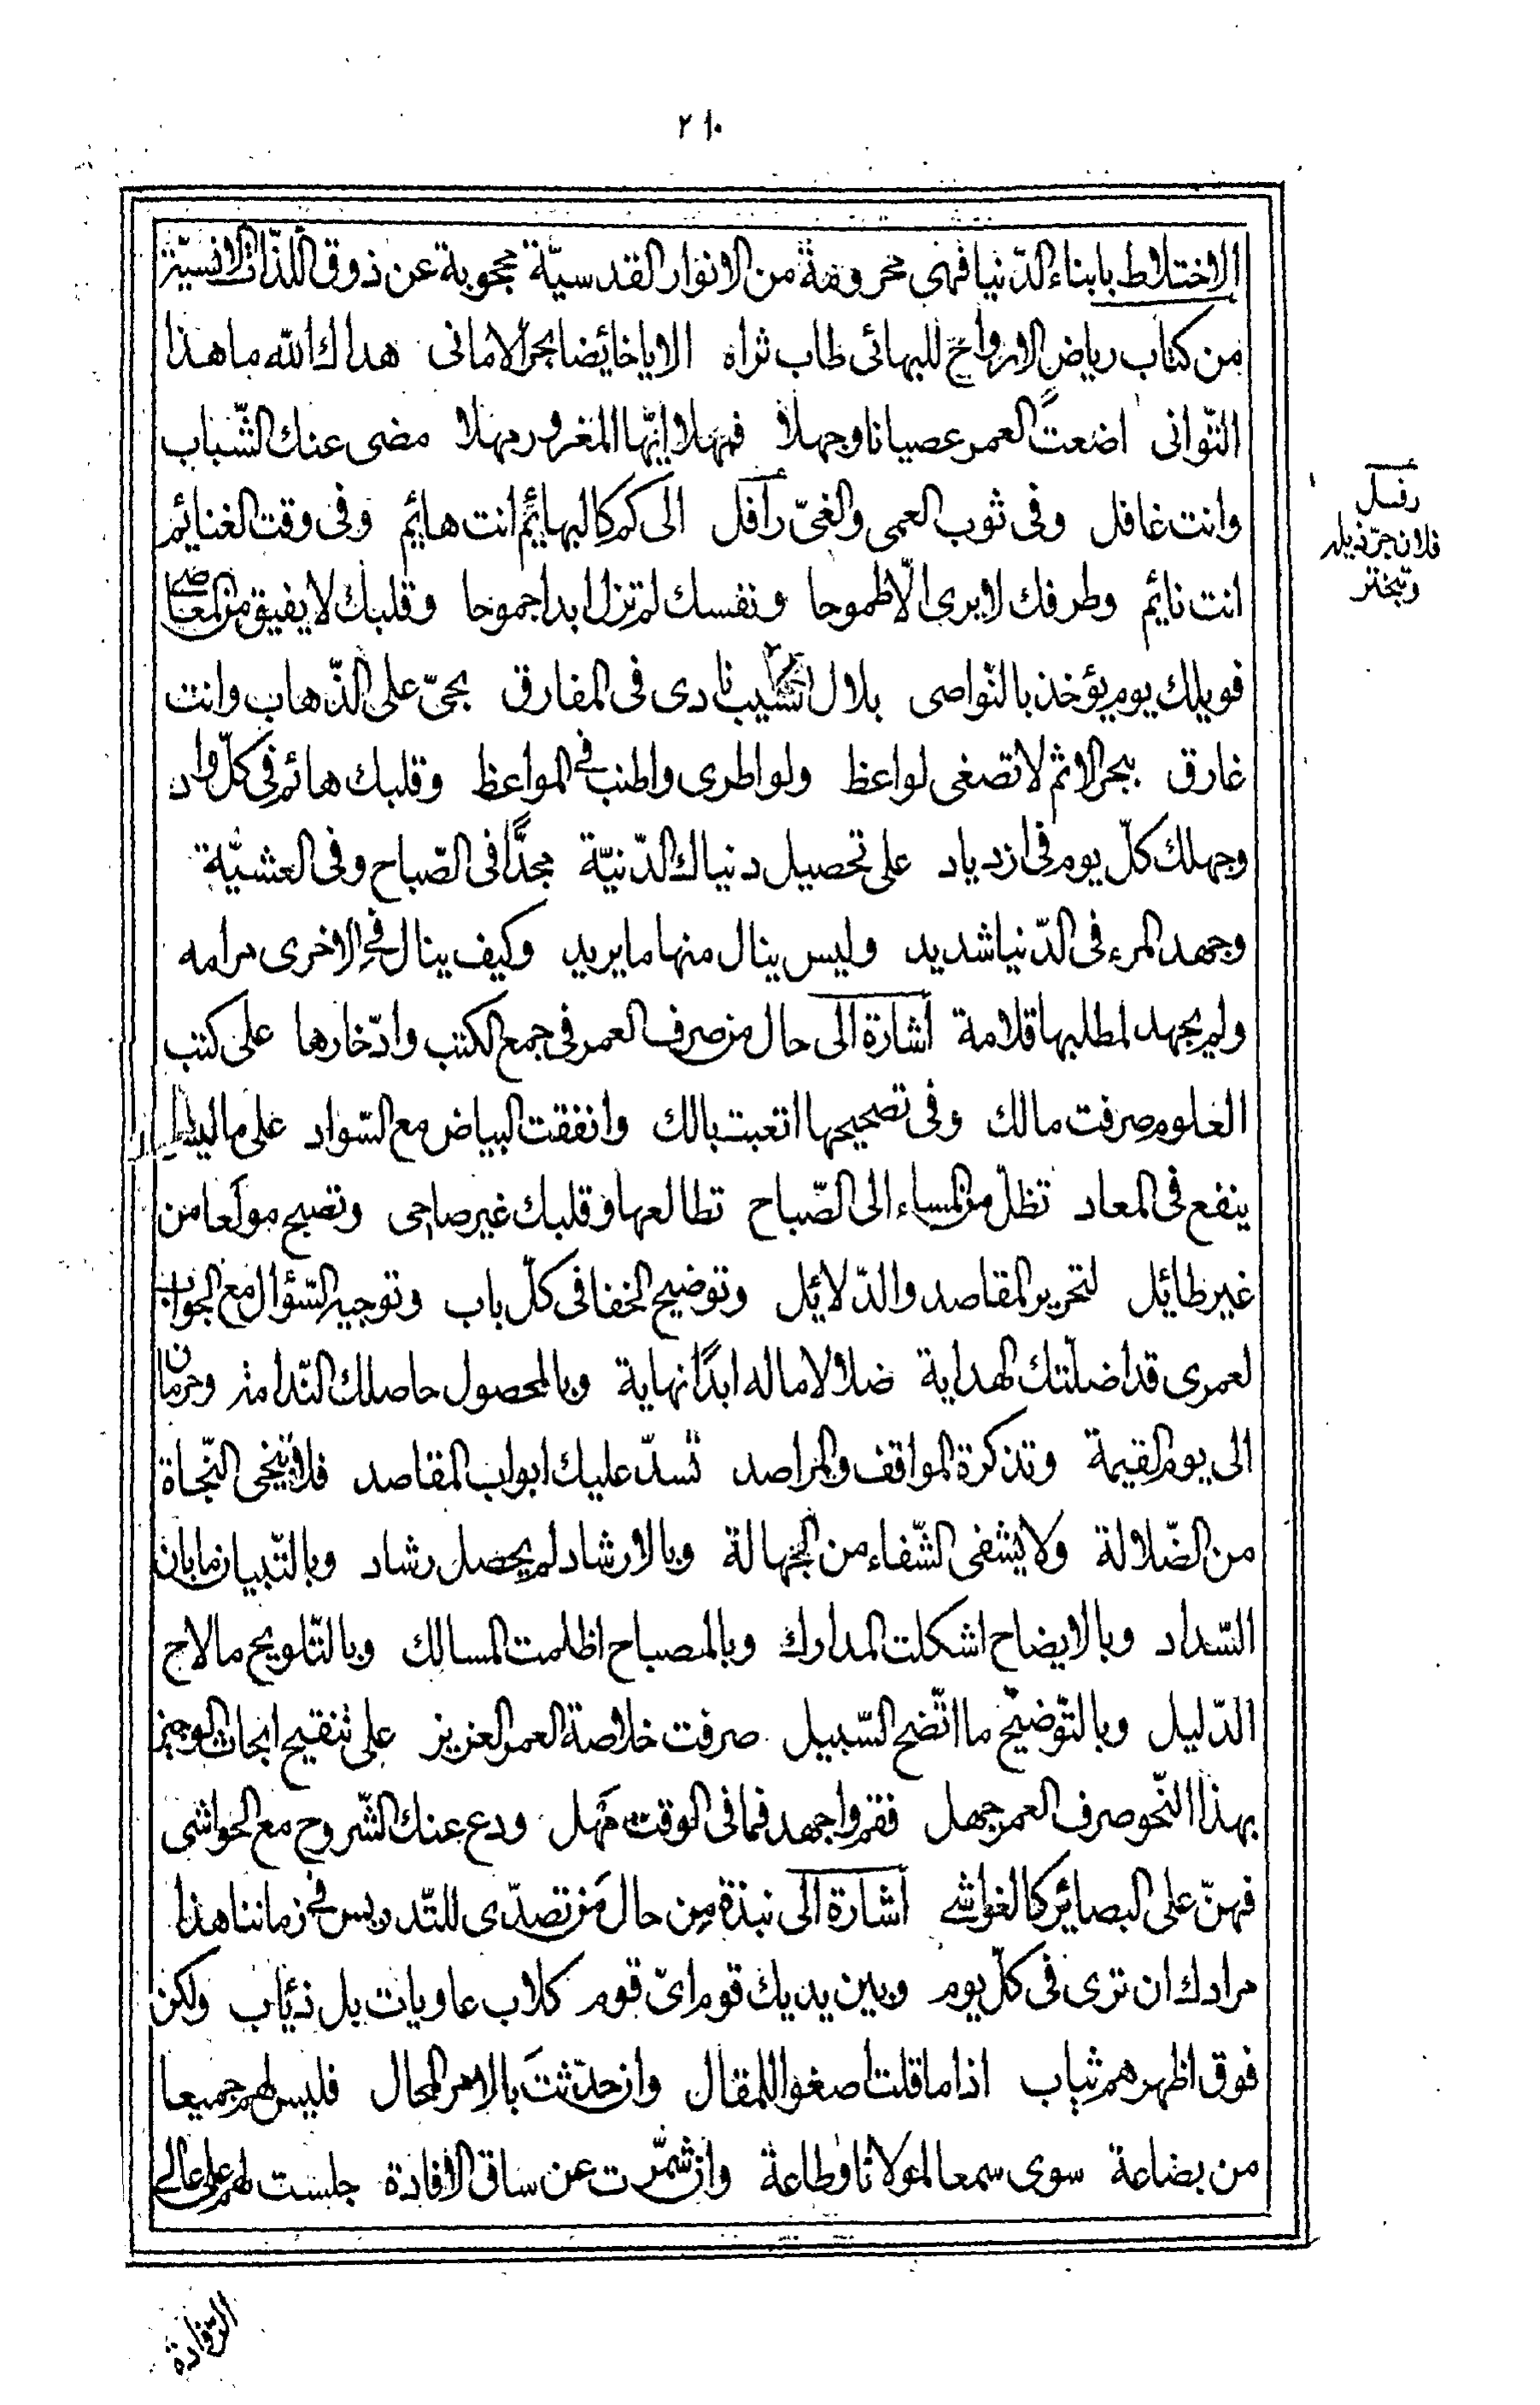 ٢١٠
الاختلاط بابناء الدّنيا فهى محرومة من الانوار القدسيّة محجوبة عن ذوق اللّذّات الانسيّة
من كتاب رياض الارواح للبهائى طاب ثراه الا يا خائضا بحر الامانى هداك الله ما هذا
التّوانى اضعت العمر عصيانا وجهلا فمهلا ايّها المغرور مهلا مضى عنك الشّباب
وانت غافل وفى ثوب العمى والغىّ رافل الى كم كالبهائم انت هائم وفى وقت الغنائم
انت نائم وطرفك لا يرى الّا طموحا ونفسك لم تزل ابدا جموحا وقلبك لا يفيق من المعاصى
فويلك يوم يؤخذ بالنّواصى بلال الشيب نادى فى المفارق بحىّ على الذّهاب وانت
غارق ببحر الاثم لا تصغى لواعظ ولو اطرى واطنب فى المواعظ وقلبك هائم فى كلّ واد
وجهلك كلّ يوم فى ازدياد على تحصيل دنياك الدّنيّة مجدًّا فى الصّباح وفى العشيّة
وجهد المرء فى الدّنيا شديد وليس ينال منها ما يريد وكيف ينال فى الاخرى مرامه
ولم يجهد لمطلبها قلامة اشارة الى حال من صرف العمر فى جمع الكتب وادّخارها على كتب
العلوم صرفت مالك وفى تصحيحها اتعبت بالك وانفقت البياض مع السّواد على ما ليس
ينفع فى المعاد تظلّ من المساء الى الصّباح تطالعها وقلبك غير صاحى وتصبح مولعا من
غير طائل لتحرير المقاصد والدّلائل وتوضيح الخفا فى كلّ باب وتوجيه السّؤال مع الجواب
لعمرى قد اضلّتك الهداية ضلالا ما له ابدًا نهاية وبالمحصول حاصلك النّدامة وحرمان
الى يوم القيمة وتذكرة المواقف والمراصد تسدّ عليك ابواب المقاصد فلا تنجى النّجاة
من الضّلالة ولا يشفى الشّفاء من الجهالة وبالارشاد لم يحصل رشاد وبالتّبيان ما بان
السّداد وبالايضاح اشكلت المدارك وبالمصباح اظلمت المسالك وبالتّلويح ما لاح
الدّليل وبالتّوضيح ما اتّضح السّبيل صرفت خلاصة العمر العزيز على تنقيح ابحاث الوجيز
بهذا النّحو صرف العمر جهل فقم واجهد فما فى الوقت مهل ودع عنك الشّروح مع الحواشى
فهنّ على البصائر كالغواشى اشارة الى نبذة من حال من تصدّى للتّدريس فى زماننا هذا
مرادك ان ترى فى كلّ يوم وبين يديك قوم اىّ قوم كلاب عاويات بل ذئاب ولكن
فوق اظهرهم ثياب اذا ما قلت اصغوا للمقال وان حدّثت بالامر المحال فليس لهم جميعا
من بضاعة سوى سمعا لمولانا وطاعة وان شمّرت عن ساق الافادة جلست لهم على عالى
رفل
فلان جرّ ذيله
وتبختر
الرّفادة